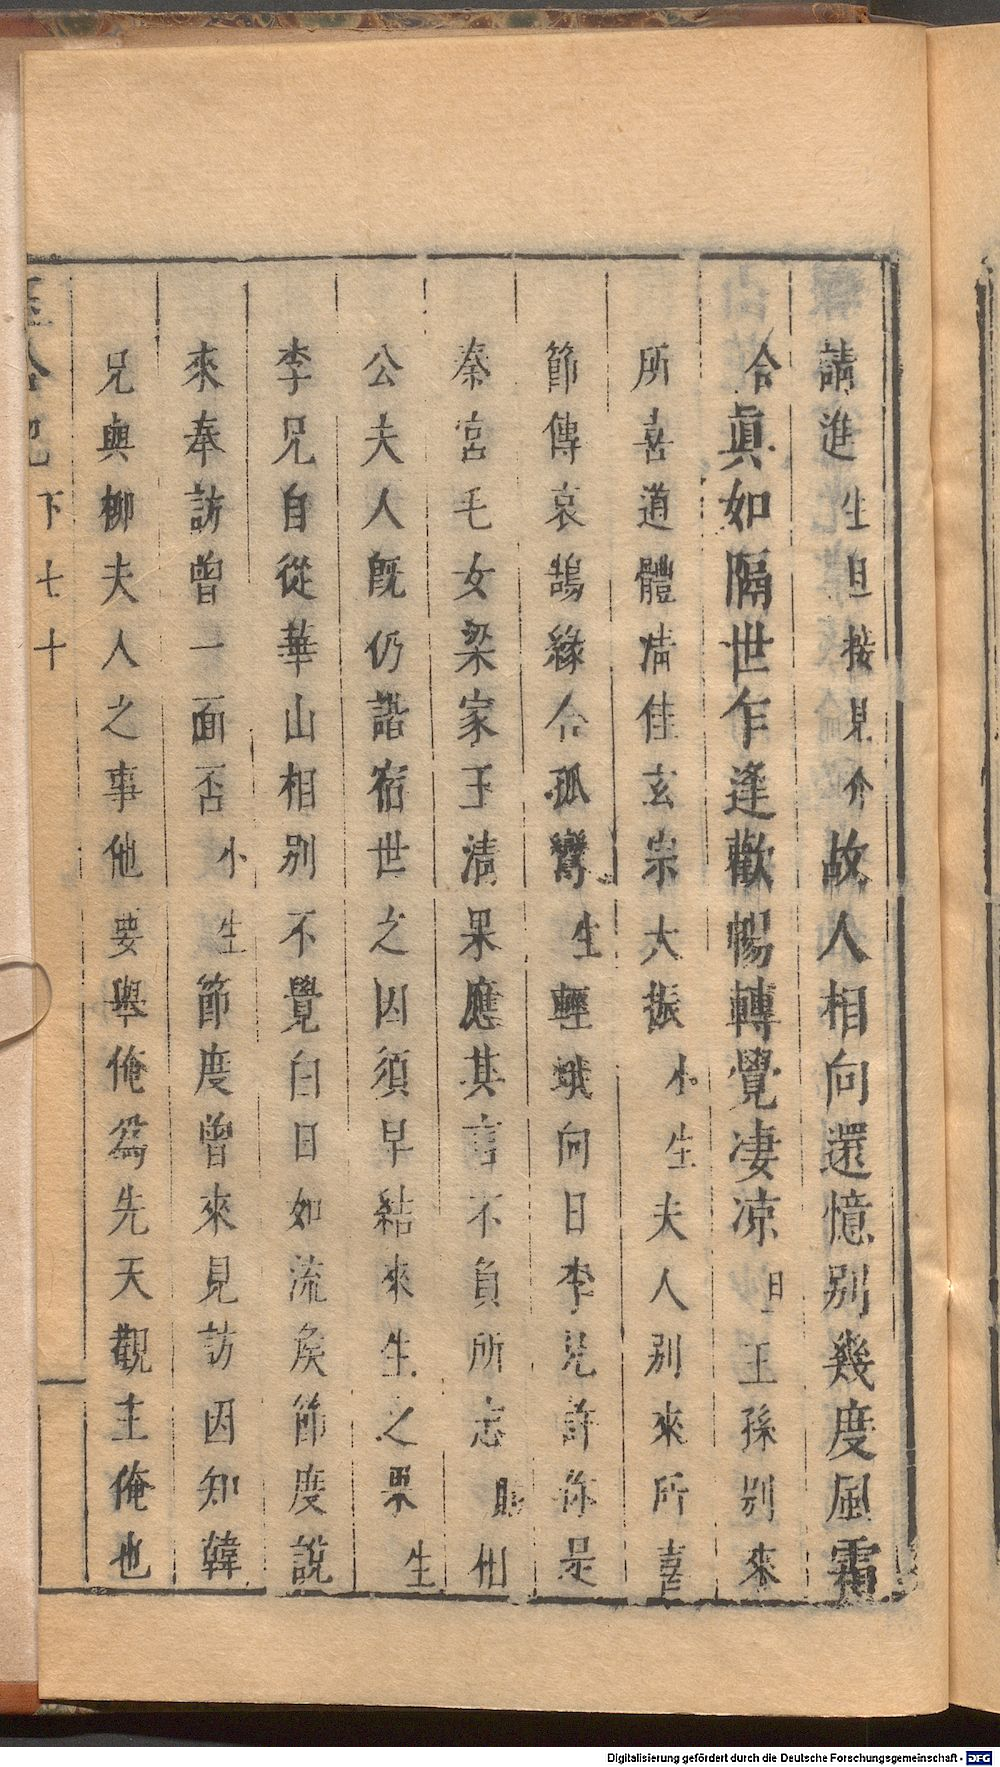 請進生旦接見介故人相向還憶別幾度風霜
合眞如隔世乍逢歡暢轉覺凄凉旦王孫別來
所喜道體清佳玄宗大振小生夫人別來所喜
節傳哀鵠緣合孤鸞生輕娥向日李兄許你是
秦宮毛女梁家玉清果應其言不負所志貼相
公夫人旣仍諧宿世之因須早結來生之果生
李兄自從華山相別不覺白日如流矣節度說
來奉訪曾一面否小生節度曾來見訪因知韓
兄與柳夫人之事他要舉俺爲先天觀主俺也
玉合記 下 七十
Digitalisierung gefördert durch die Deutsche Forschungsgemeinschaft - DFG